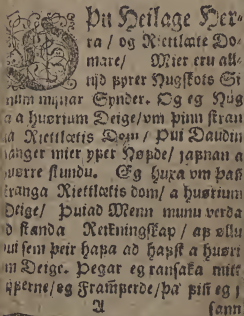 Þu Heilage Her-
ra / og Riettlaate Do-
mare / Mier eru all-
tijd fyrer Hugskots Si-
num mijnar Synder. Og eg Hug
a a huørium Deige / vm þinn stran
ga Riettlætis Dom / Þui Daudin
hanger mier yfer Høfde / jafnan a
huørre stundu. Eg huxa vm þañ
stranga Riettlætis dom / a huørium
Deige / Þuiad Menn munu verda
d standa Reikningskap / af øllu
þui sem þeir hafa ad hafst a huøri
um Deige. Þegar eg ransaka mitt
Lijferne / og Framferde / þa' fiñ eg j
A sann